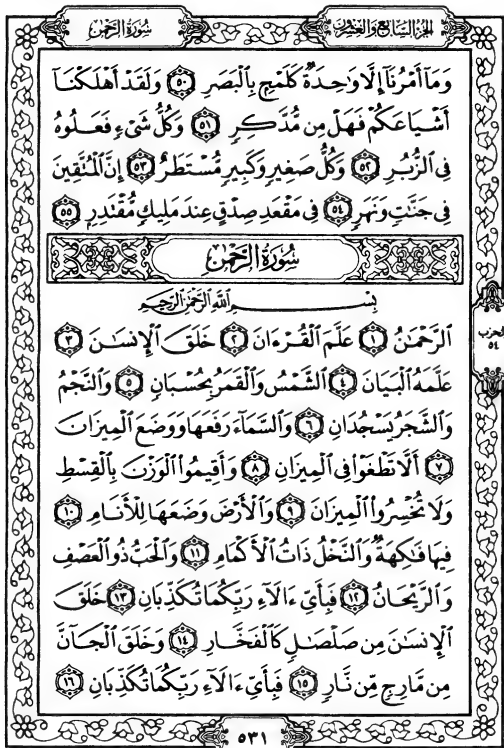 سُورَةُ الرَّحْمَٰن
الجزء السابع والعشرون
وَمَآ أَمْرُنَآ إِلَّا وَٰحِدَةٌ كَلَمْحٍۭ بِٱلْبَصَرِ ٥٠ وَلَقَدْ أَهْلَكْنَآ
أَشْيَاعَكُمْ فَهَلْ مِن مُّدَّكِرٍ ٥١ وَكُلُّ شَىْءٍ فَعَلُوهُ
فِى ٱلزُّبُرِ ٥٢ وَكُلُّ صَغِيرٍ وَكَبِيرٍ مُّسْتَطَرٌ ٥٣ إِنَّ ٱلْمُتَّقِينَ
فِى جَنَّٰتٍ وَنَهَرٍ ٥٤ فِى مَقْعَدِ صِدْقٍ عِندَ مَلِيكٍ مُّقْتَدِرٍۭ ٥٥
سُورَةُ الرَّحْمَٰن
بِسْمِ ٱللَّهِ ٱلرَّحْمَٰنِ ٱلرَّحِيمِ
ٱلرَّحْمَٰنُ ١ عَلَّمَ ٱلْقُرْءَانَ ٢ خَلَقَ ٱلْإِنسَٰنَ ٣
عَلَّمَهُ ٱلْبَيَانَ ٤ ٱلشَّمْسُ وَٱلْقَمَرُ بِحُسْبَانٍ ٥ وَٱلنَّجْمُ
وَٱلشَّجَرُ يَسْجُدَانِ ٦ وَٱلسَّمَآءَ رَفَعَهَا وَوَضَعَ ٱلْمِيزَانَ
٧ أَلَّا تَطْغَوْا۟ فِى ٱلْمِيزَانِ ٨ وَأَقِيمُوا۟ ٱلْوَزْنَ بِٱلْقِسْطِ
وَلَا تُخْسِرُوا۟ ٱلْمِيزَانَ ٩ وَٱلْأَرْضَ وَضَعَهَا لِلْأَنَامِ ١٠
فِيهَا فَٰكِهَةٌ وَٱلنَّخْلُ ذَاتُ ٱلْأَكْمَامِ ١١ وَٱلْحَبُّ ذُو ٱلْعَصْفِ
وَٱلرَّيْحَانُ ١٢ فَبِأَىِّ ءَالَآءِ رَبِّكُمَا تُكَذِّبَانِ ١٣ خَلَقَ
ٱلْإِنسَٰنَ مِن صَلْصَٰلٍ كَٱلْفَخَّارِ ١٤ وَخَلَقَ ٱلْجَآنَّ
مِن مَّارِجٍ مِّن نَّارٍ ١٥ فَبِأَىِّ ءَالَآءِ رَبِّكُمَا تُكَذِّبَانِ ١٦
الحزب
٥٤
٥٣١